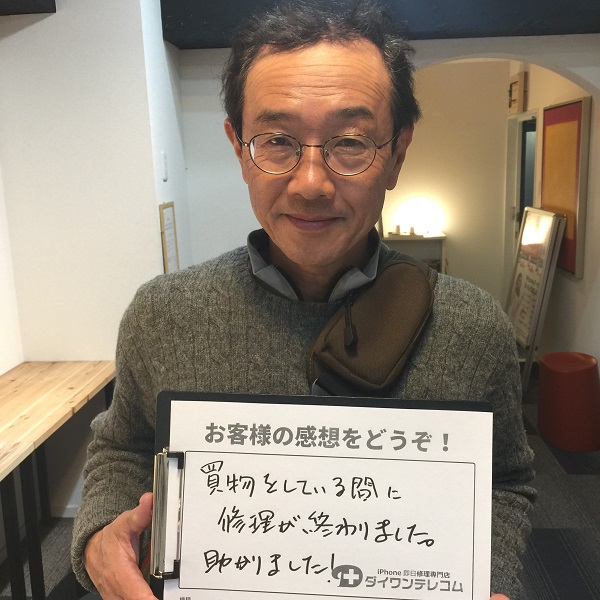 お客様の感想をどうぞ!
買物をしている間に
修理が、終わりました。
助かりました!
iPhone 即日修理専門店
ダイワンテレコム